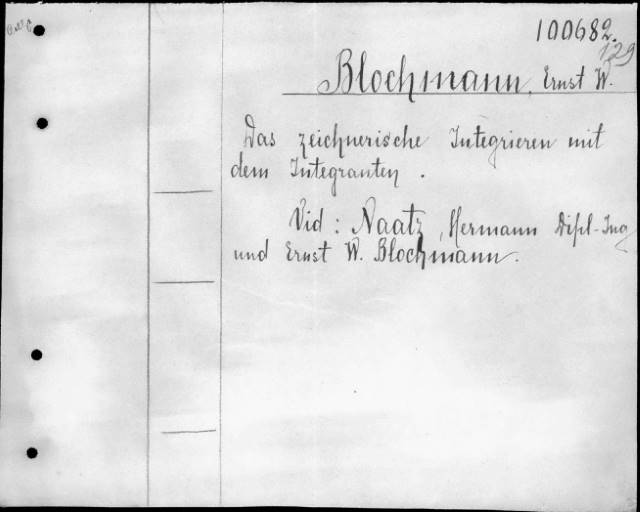 100682.
129
Blochmann, Ernst W.
Das zeichnerische Integrieren mit
dem Integranten .
Vid : Naatz, Hermann Dipl-Ing
und Ernst W. Blochmann.